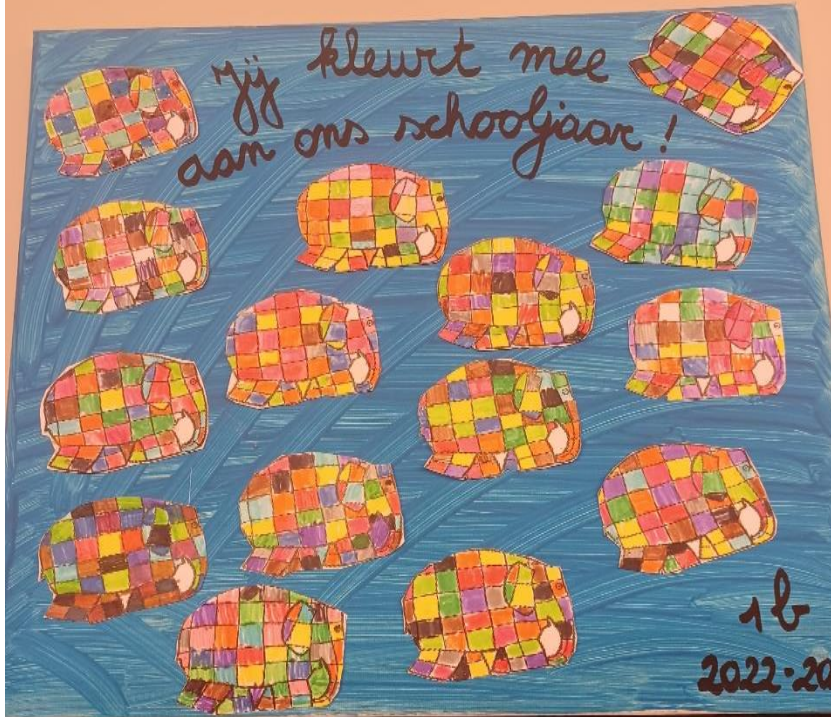 jij kleurt mee
aan ons schooljaar!
1b
2022-20